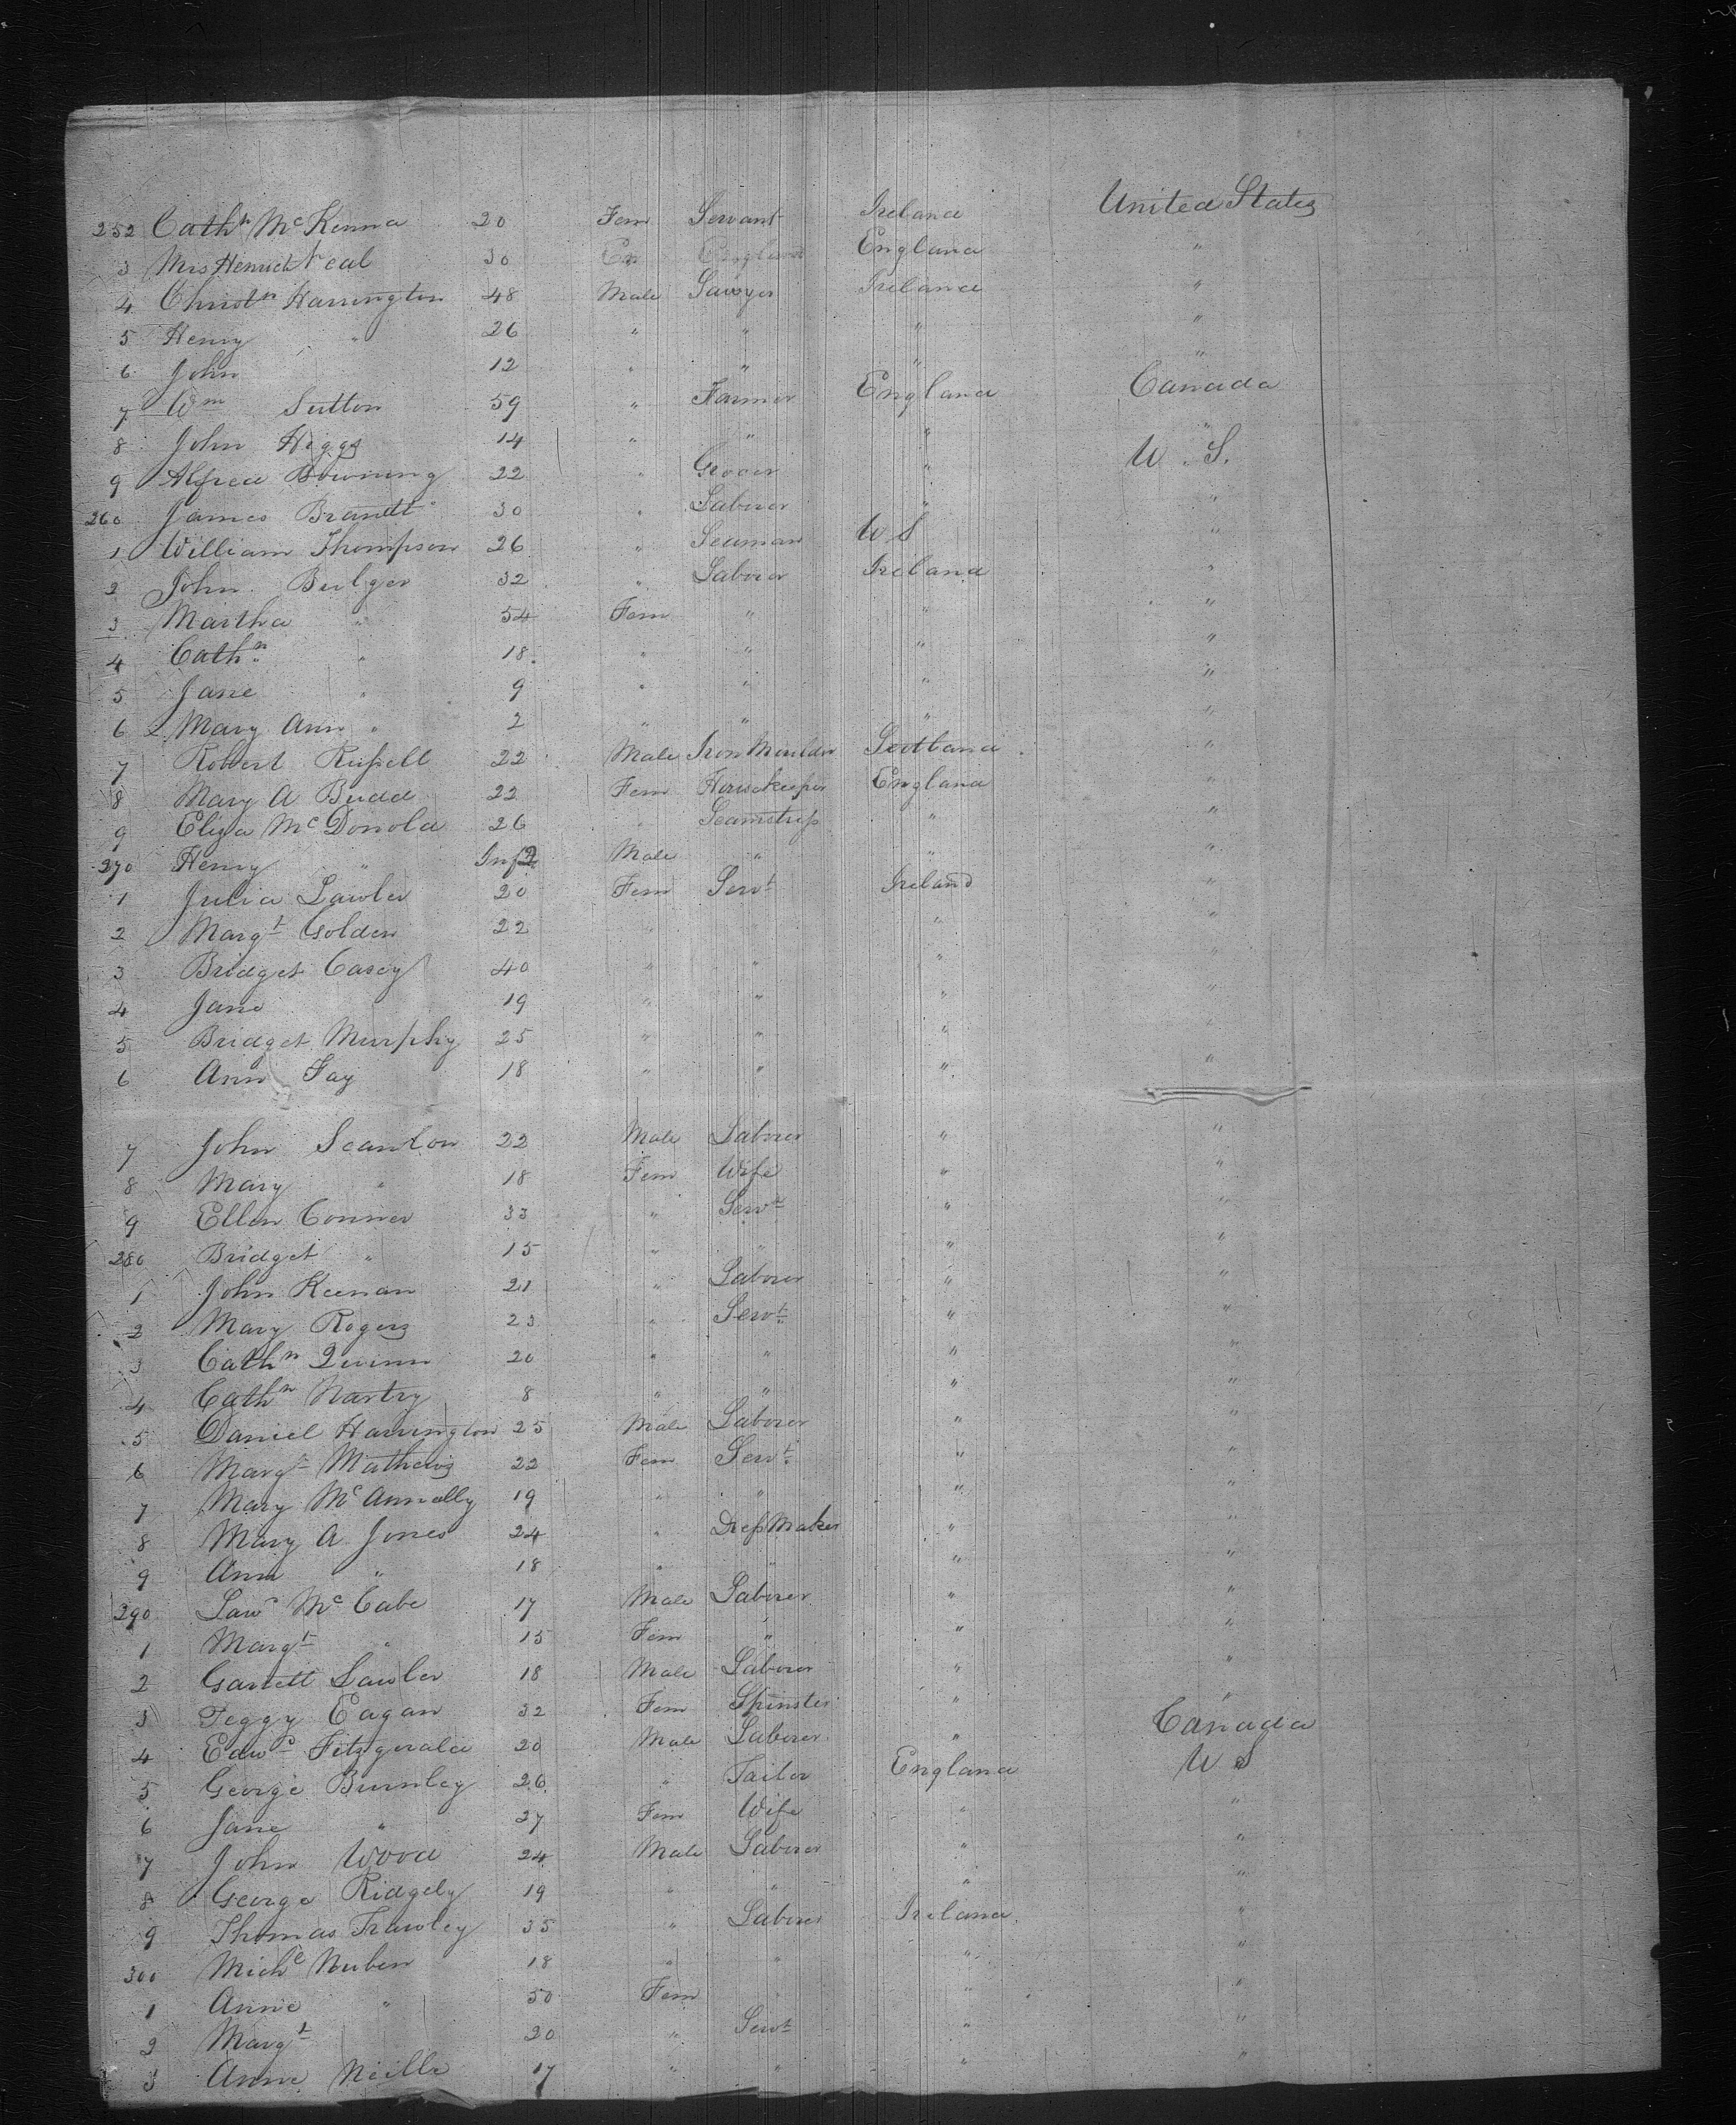 252 Cathn McKenna 20 Fem Servant Ireland United States
3 Mrs Neal 30 England England "
4 Christn Harrington 48 Male Sawyer Ireland "
5 Henry " 26 " " " "
6 John 12 " " " "
7 Wm Sutton 59 " Farmer England Canada
8 John Higgs 14 " " " "
9 Alfred Browning 22 " Grocer " U.S.
260 James Brandt 30 " Laborer " "
1 William Thompson 26 " Seaman U S "
2 John Bulger 32 " Laborer Ireland "
3 Martha " 54 Fem " " "
4 Cathn " 18 " " " "
5 Jane " 9 " " " "
6 Mary Ann " 2 " " " "
7 Robert Russell 22 Male Iron Moulder Scotland "
8 Mary A Budd 22 Fem Housekeeper England "
9 Eliza McDonold 26 " Seamstress " "
270 Henry " Inft Male " " "
1 Julia Lawler 20 Fem Servt Ireland "
2 Margt Golden 22 " " "
3 Bridget Casey 40 " " " "
4 Jane 19 " " " "
5 Bridget Murphy 25 " " " "
6 Ann Fay 18 " " " "
7 John Scanlon 22 Male Laborer " "
8 Mary " 18 Fem Wife " "
9 Ellen Conner 33 " Servt " "
280 Bridget " 15 " " " "
1 John Keenan 21 " Laborer " "
2 Mary Rogers 23 " Servt " "
3 Cathn Quinn 20 " " " "
4 Cathn Nartry 8 " " " "
5 Daniel Harrington 25 Male Laborer " "
6 Margt Mathews 22 Fem Servt " "
7 Mary McAnnally 19 " " " "
8 Mary A Jones 24 " Dress Maker " "
9 Ann " 18 " " " "
290 Lawc McCabe 17 Male Laborer " "
1 Margt " 15 Fem " " "
2 Garrett Lawler 18 Male Laborer " "
3 Peggy Eagan 32 Fem Spinster " "
4 Edwd Fitzgerald 20 Male Laborer " Canada
5 George Burnley 26 " Tailor England U S
6 Jane " 27 Fem Wife " "
7 John Wood 24 Male Laborer " "
8 George Ridgely 19 " " " "
9 Thomas Frawley 35 " Laborer Ireland "
300 Michl 18 " " " "
1 Anne " 50 Fem " "
2 Margt 20 " Servt " "
3 Anne 17 " " " "